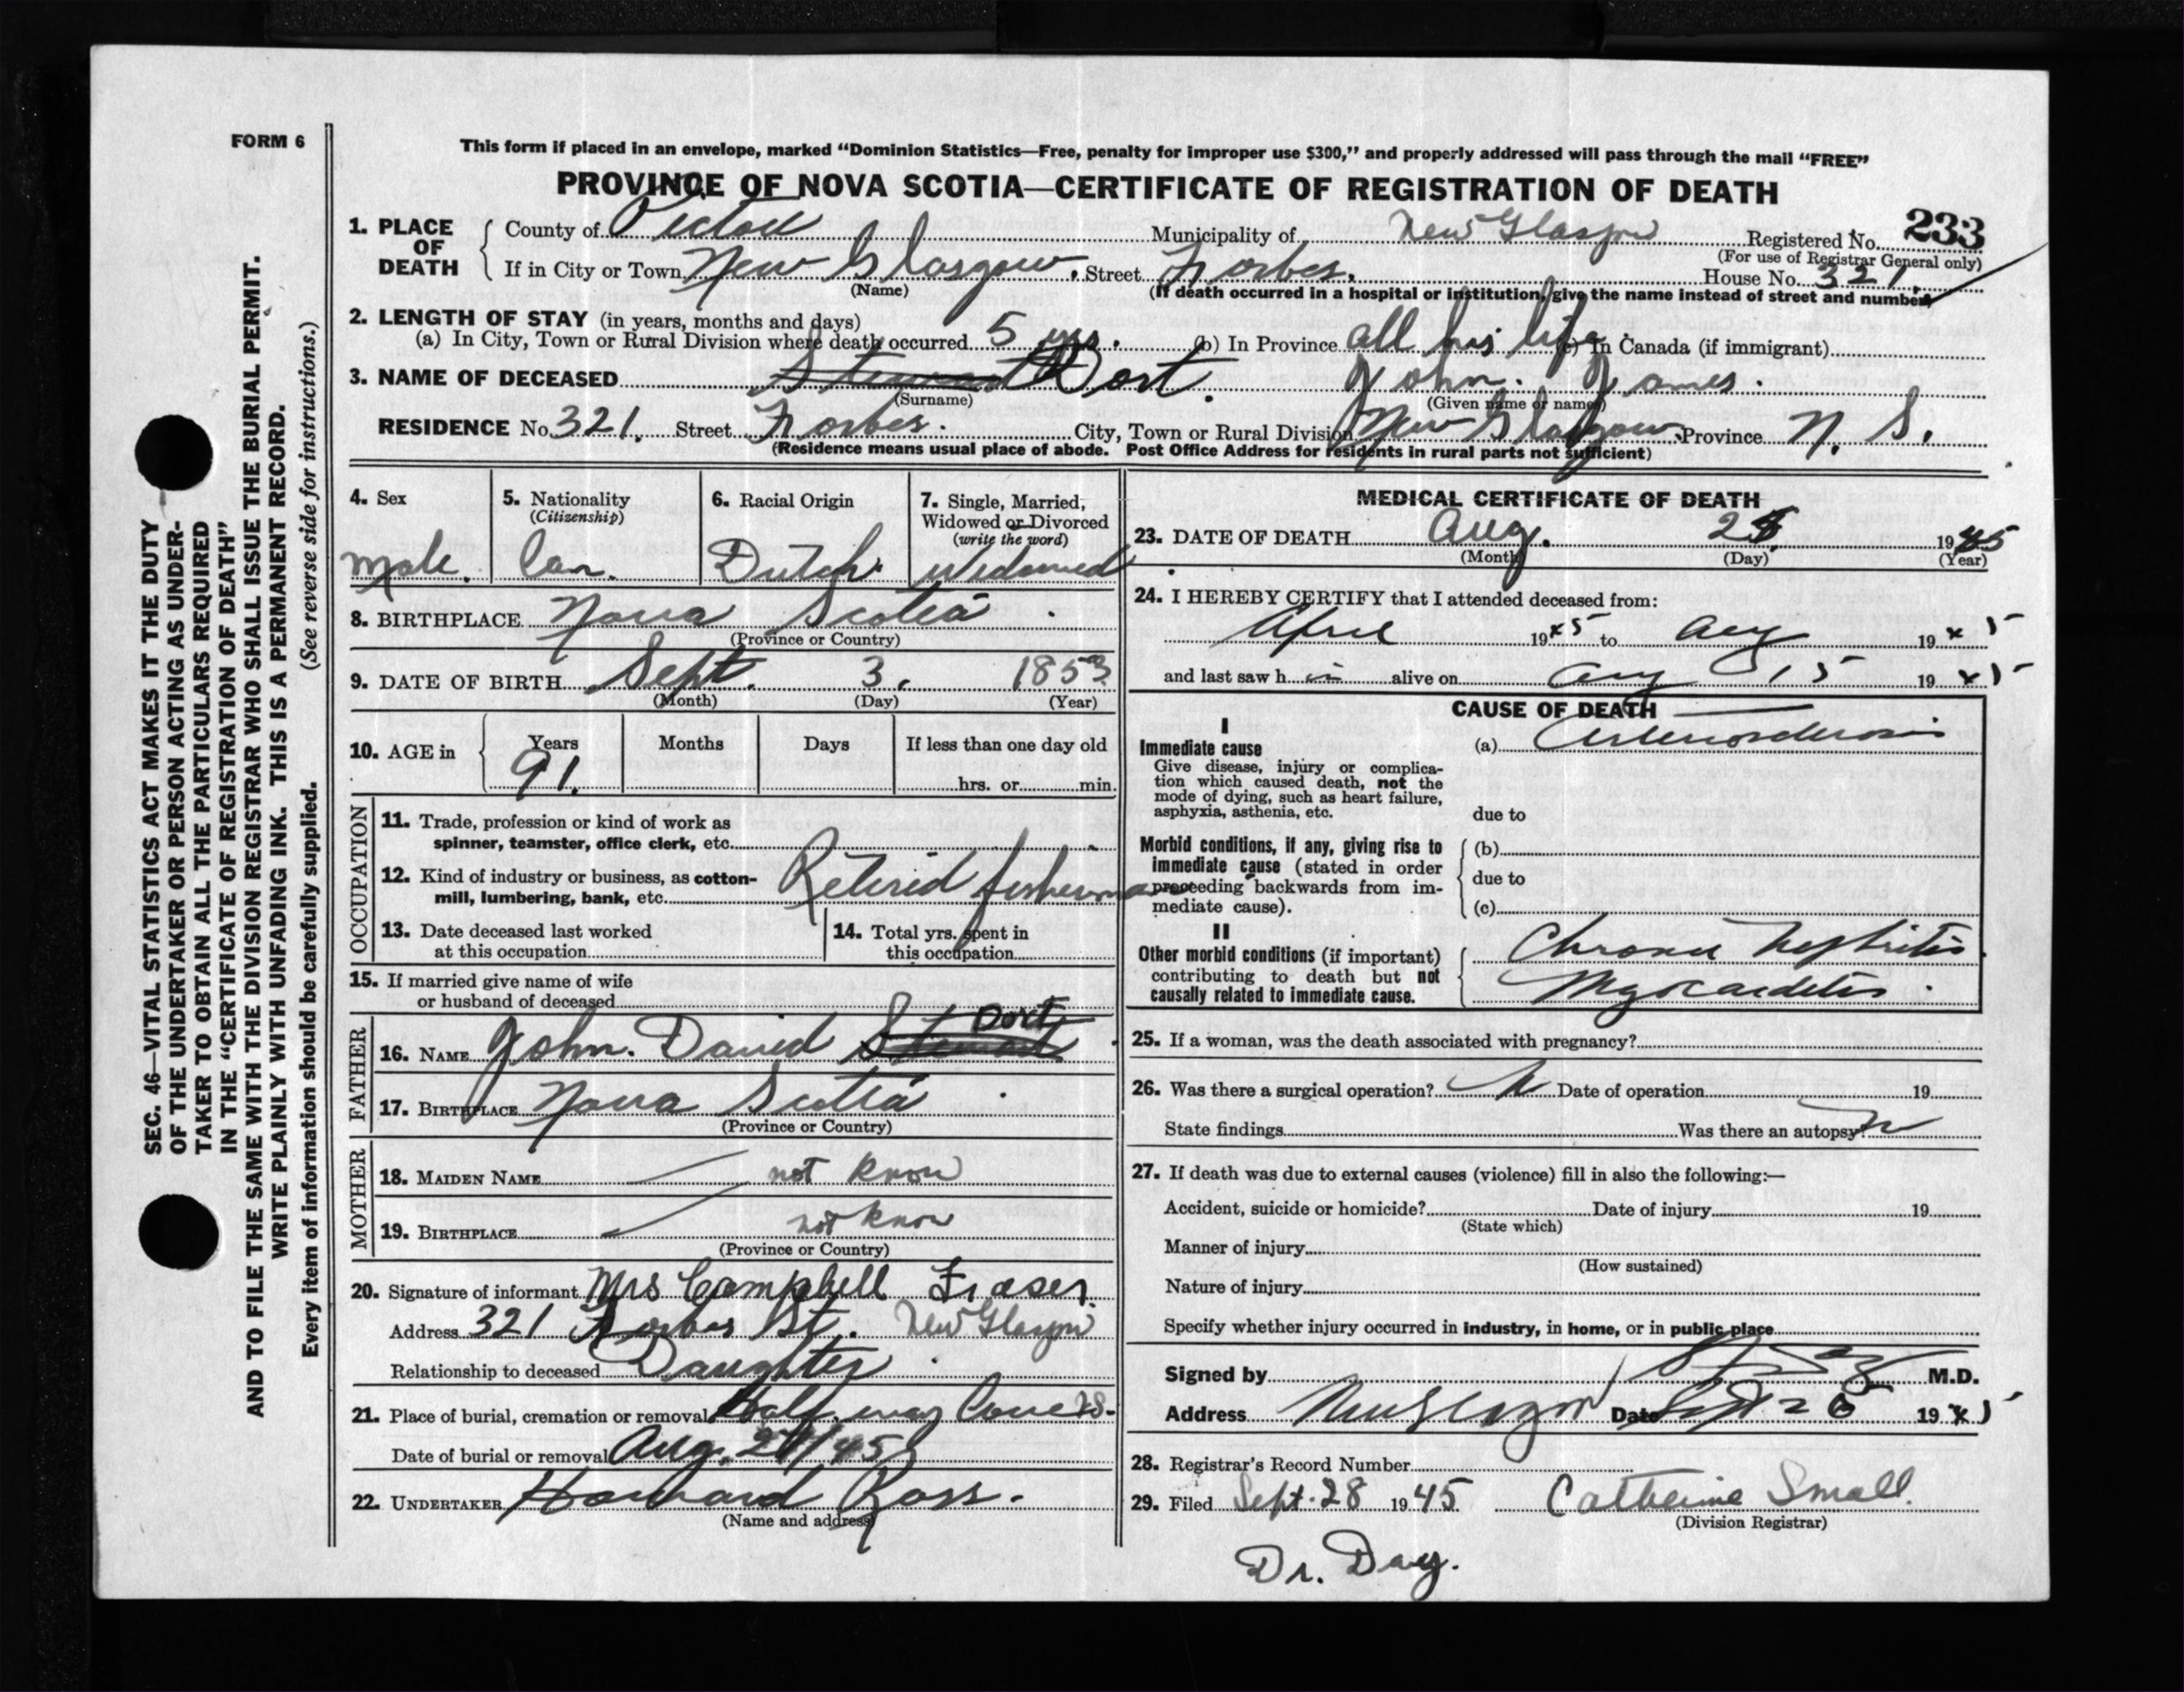 FORM 6
This form if placed in an envelope, marked “Dominion Statistics—Free, penalty for improper use $300,” and properly addressed will pass through the mail “FREE”
PROVINCE OF NOVA SCOTIA—CERTIFICATE OF REGISTRATION OF DEATH
1. PLACE OF DEATH County of Pictou Municipality of New Glasgow Registered No. 233
(For use of Registrar General only)
If in City or Town New Glasgow. Street Forbes. House No. 321.
(Name) (If death occurred in a hospital or institution, give the name instead of street and number)
2. LENGTH OF STAY (in years, months and days)
(a) In City, Town or Rural Division where death occurred 5 yrs. (b) In Province all his life. (c) In Canada (if immigrant)
3. NAME OF DECEASED Stewart Dort. John. James.
(Surname) (Given name or names)
RESIDENCE No. 321. Street Forbes. City, Town or Rural Division New Glasgow. Province N. S.
(Residence means usual place of abode. Post Office Address for residents in rural parts not sufficient)
4. Sex male.
5. Nationality (Citizenship) Can.
6. Racial Origin Dutch
7. Single, Married, Widowed or Divorced (write the word) Widowed
8. BIRTHPLACE Nova Scotia
(Province or Country)
9. DATE OF BIRTH Sept. 3. 1853
(Month) (Day) (Year)
10. AGE in Years Months Days If less than one day old
91. hrs. or min.
OCCUPATION
11. Trade, profession or kind of work as
spinner, teamster, office clerk, etc.
12. Kind of industry or business, as cotton-
mill, lumbering, bank, etc. Retired fisherman
13. Date deceased last worked
at this occupation
14. Total yrs. spent in
this occupation
15. If married give name of wife
or husband of deceased
FATHER
16. NAME John. David Stewart Dort
17. BIRTHPLACE Nova Scotia
(Province or Country)
MOTHER
18. MAIDEN NAME not know
19. BIRTHPLACE not know
(Province or Country)
20. Signature of informant Mrs Campbell Fraser.
Address 321 Forbes St. New Glasgow
Relationship to deceased Daughter
21. Place of burial, cremation or removal Half way Cove
Date of burial or removal Aug. /45
22. UNDERTAKER Ross.
(Name and address)
MEDICAL CERTIFICATE OF DEATH
23. DATE OF DEATH Aug. 1945
(Month) (Day) (Year)
24. I HEREBY CERTIFY that I attended deceased from:
April 1945 to Aug 1945
and last saw h im alive on Aug 15 1945
CAUSE OF DEATH
I
Immediate cause
Give disease, injury or complica-
tion which caused death, not the
mode of dying, such as heart failure,
asphyxia, asthenia, etc.
(a) Arteriosclerosis
due to
Morbid conditions, if any, giving rise to
immediate cause (stated in order
proceeding backwards from im-
mediate cause).
(b)
due to
(c)
II
Other morbid conditions (if important)
contributing to death but not
causally related to immediate cause.
Chronic Nephritis
Myocarditis.
25. If a woman, was the death associated with pregnancy?
26. Was there a surgical operation? No Date of operation 19
State findings Was there an autopsy? No
27. If death was due to external causes (violence) fill in also the following:—
Accident, suicide or homicide? Date of injury 19
(State which)
Manner of injury
(How sustained)
Nature of injury
Specify whether injury occurred in industry, in home, or in public place
Signed by M.D.
Address New Glasgow Date Sept 26 1945
28. Registrar's Record Number
29. Filed Sept. 28 1945 Catherine Small.
(Division Registrar)
Dr. Day.
SEC. 46—VITAL STATISTICS ACT MAKES IT THE DUTY
OF THE UNDERTAKER OR PERSON ACTING AS UNDER-
TAKER TO OBTAIN ALL THE PARTICULARS REQUIRED
IN THE “CERTIFICATE OF REGISTRATION OF DEATH”
AND TO FILE THE SAME WITH THE DIVISION REGISTRAR WHO SHALL ISSUE THE BURIAL PERMIT.
WRITE PLAINLY WITH UNFADING INK. THIS IS A PERMANENT RECORD.
Every item of information should be carefully supplied. (See reverse side for instructions.)